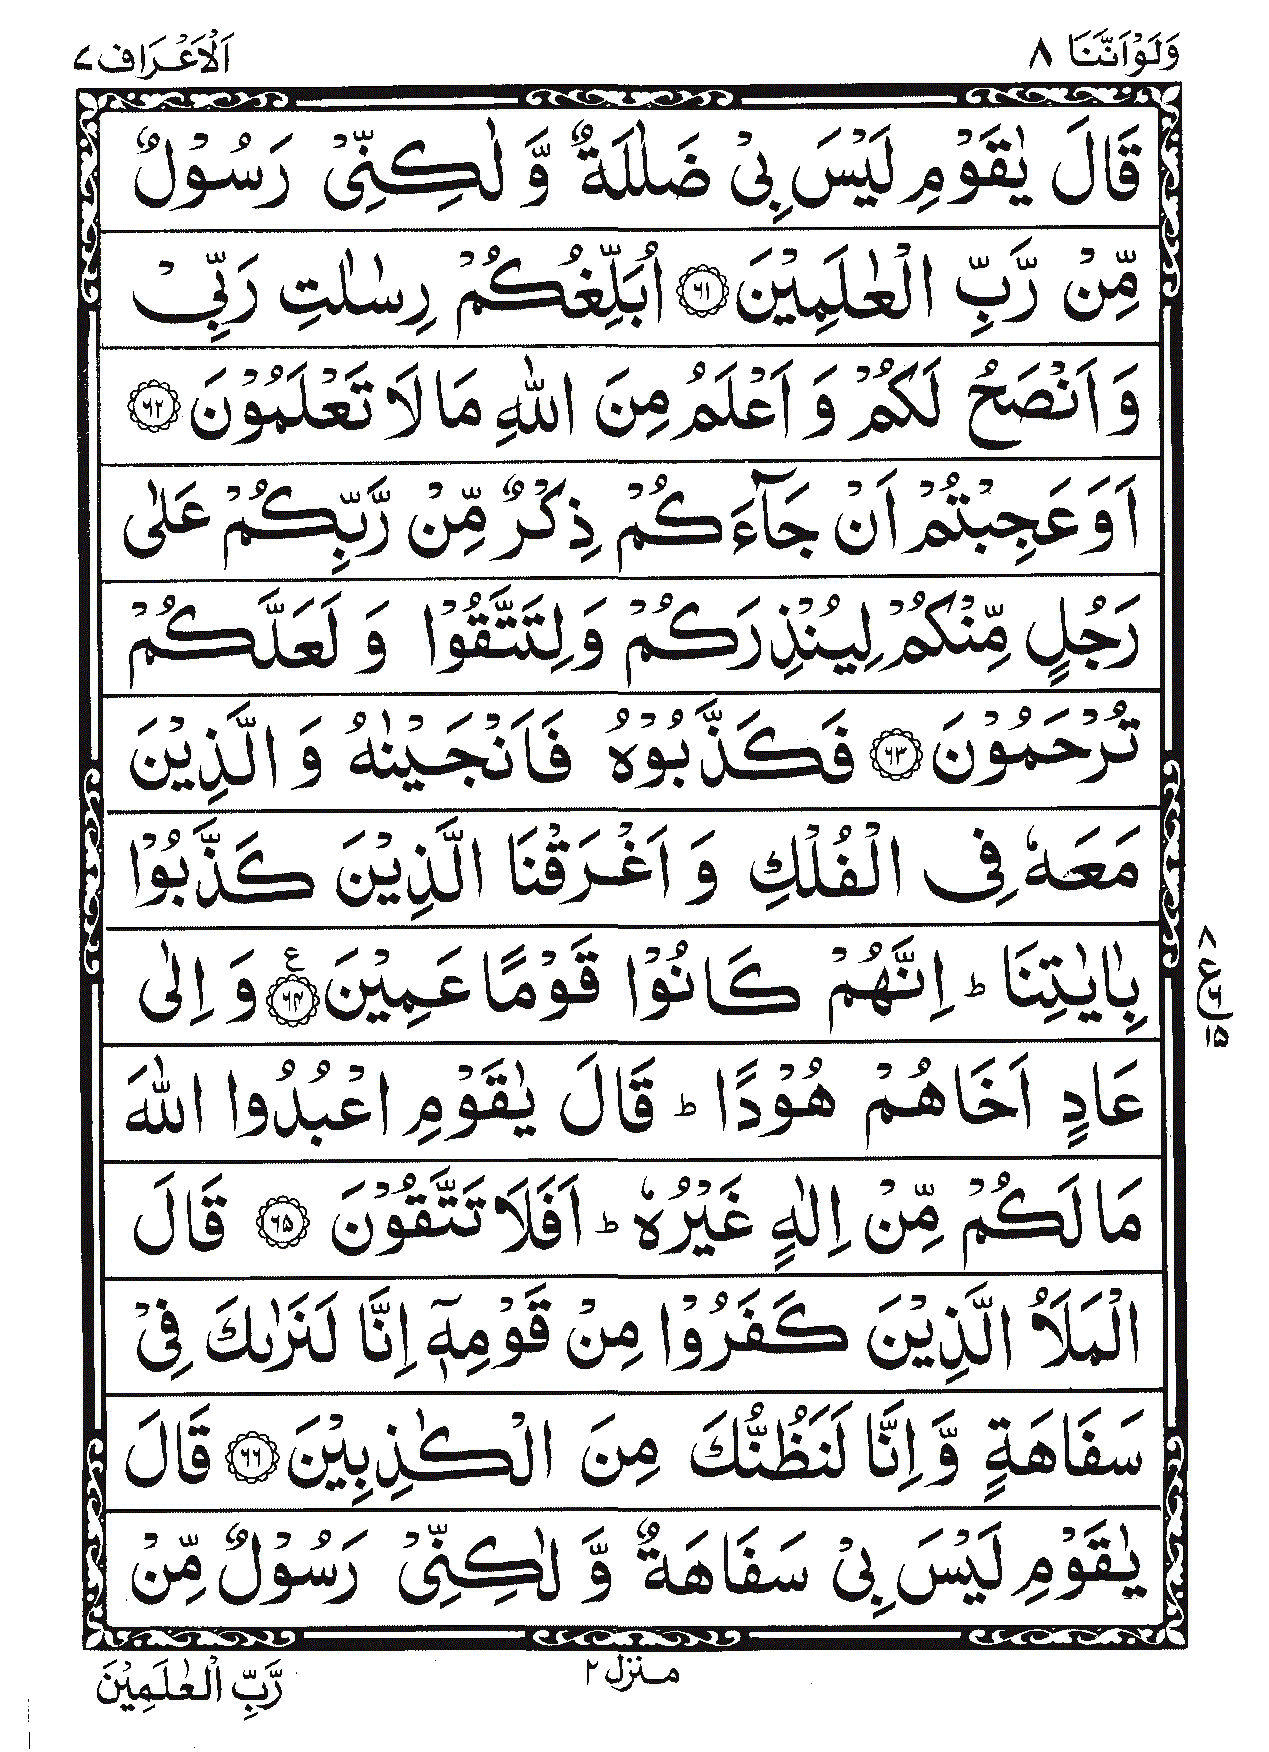 وَلَوْاَنَّنَا ٨
اَلْاَعْرَاف ٧
قَالَ يٰقَوْمِ لَيْسَ بِىْ ضَلٰلَةٌ وَّ لٰكِنِّىْ رَسُوْلٌ
مِّنْ رَّبِّ الْعٰلَمِيْنَ ﴿٦١﴾ اُبَلِّغُكُمْ رِسٰلٰتِ رَبِّىْ
وَ اَنْصَحُ لَكُمْ وَ اَعْلَمُ مِنَ اللّٰهِ مَا لَا تَعْلَمُوْنَ ﴿٦٢﴾
اَوَعَجِبْتُمْ اَنْ جَآءَكُمْ ذِكْرٌ مِّنْ رَّبِّكُمْ عَلٰى
رَجُلٍ مِّنْكُمْ لِيُنْذِرَكُمْ وَلِتَتَّقُوْا وَ لَعَلَّكُمْ
تُرْحَمُوْنَ ﴿٦٣﴾ فَكَذَّبُوْهُ فَاَنْجَيْنٰهُ وَ الَّذِيْنَ
مَعَهٗ فِى الْفُلْكِ وَ اَغْرَقْنَا الَّذِيْنَ كَذَّبُوْا
بِاٰيٰتِنَا ؕ اِنَّهُمْ كَانُوْا قَوْمًا عَمِيْنَ ﴿٦٤﴾ ع وَ اِلٰى
٨ ع ١٥
عَادٍ اَخَاهُمْ هُوْدًا ؕ قَالَ يٰقَوْمِ اعْبُدُوا اللّٰهَ
مَا لَكُمْ مِّنْ اِلٰهٍ غَيْرُهٗ ؕ اَفَلَا تَتَّقُوْنَ ﴿٦٥﴾ قَالَ
الْمَلَاُ الَّذِيْنَ كَفَرُوْا مِنْ قَوْمِهٖۤ اِنَّا لَنَرٰىكَ فِىْ
سَفَاهَةٍ وَّ اِنَّا لَنَظُنُّكَ مِنَ الْكٰذِبِيْنَ ﴿٦٦﴾ قَالَ
يٰقَوْمِ لَيْسَ بِىْ سَفَاهَةٌ وَّ لٰكِنِّىْ رَسُوْلٌ مِّنْ
منزل ٢
رَّبِّ الْعٰلَمِيْنَ